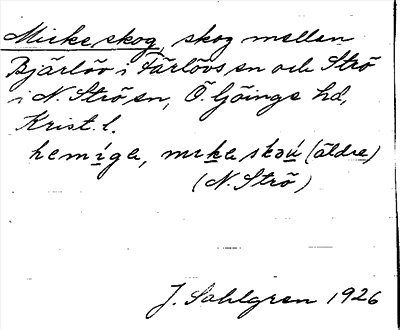 Micke skog, skog mellan
Bjärlöv i Färlövs sn och Strö
i N. Strö sn, Ö. Göinge hd,
Krist. l.
hemíga, mɩka skǝu (äldre)
(N. Strö)
J. Sahlgren 1926